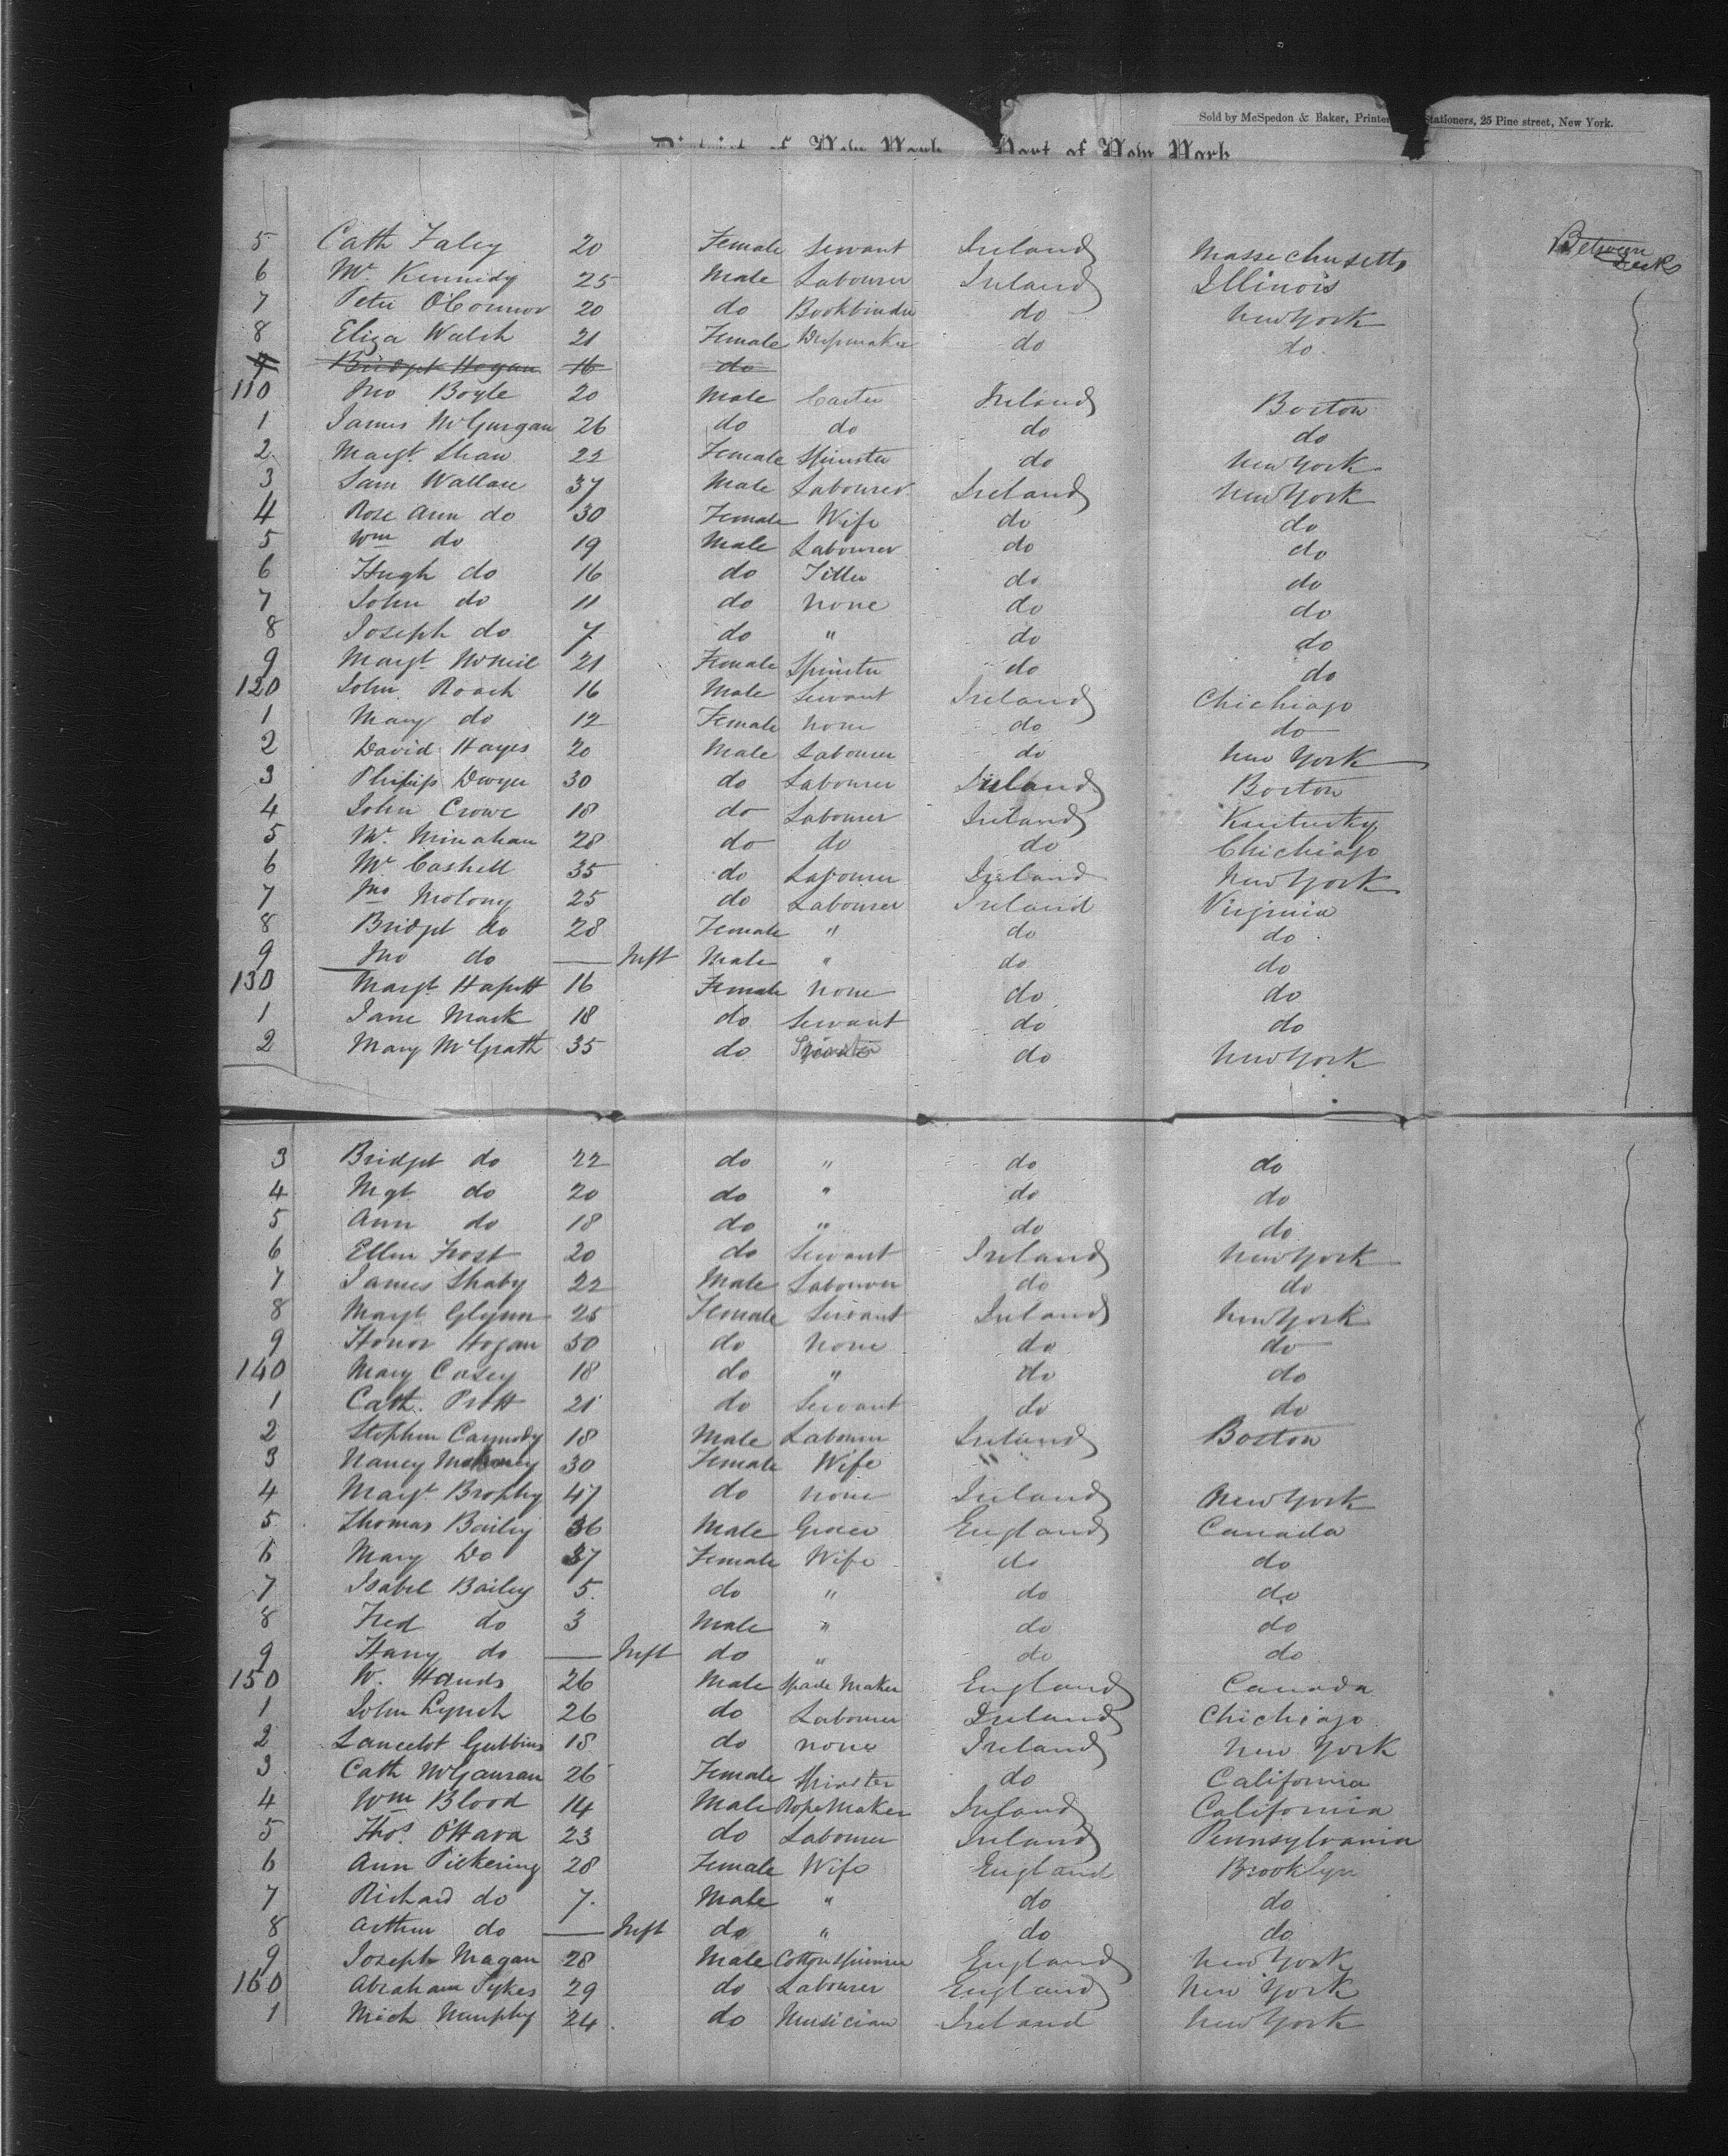 Sold by McSpedon & Baker, Printer Stationers, 25 Pine street, New York.
District of New York Port of New York
5 Cath Faley 20 Female Servant Ireland Massachusetts Between Decks
6 Mr. Kennedy 25 Male Labourer Ireland Illinois
7 Peter O'Connor 20 do Bookbinder do New York
8 Eliza Walsh 21 Female Dressmaker do do
9 Bridget Hogan 16 do
110 Jno Boyle 20 Male Carter Ireland Boston
1 James McGurgan 26 do do do do
2 Margt. Shaw 22 Female Spinster do New York
3 Sam Wallace 37 Male Labourer Ireland New York
4 Rose Ann do 30 Female Wife do do
5 Wm do 19 Male Labourer do do
6 Hugh do 16 do do do
7 John do 11 do None do do
8 Joseph do 7 do " do do
9 Margt. McNeil 21 Female Spinster do do
120 John Roach 16 Male Servant Ireland Chichiago
1 Mary do 12 Female None do do
2 David Hayes 20 Male Labourer do New York
3 Philip Dwyer 30 do Labourer Ireland Boston
4 John Crowe 18 do Labourer Ireland Kentucky
5 Mr. Minahan 28 do do do Chichiago
6 Mr. Cashell 35 do Labourer Ireland New York
7 Jno Molony 25 do Labourer Ireland Virginia
8 Bridget do 28 Female " do do
9 Jno do — Inft Male " do do
130 Margt. 16 Female None do do
1 Jane Mack 18 do Servant do do
2 Mary McGrath 35 do Spinster do New York
3 Bridget do 22 do " do do
4 Mgt. do 20 do " do do
5 Ann do 18 do " do do
6 Ellen Frost 20 do Servant Ireland New York
7 James Shaby 22 Male Labourer do do
8 Margt Glynn 25 Female Servant Ireland New York
9 Honor Hogan 50 do None do do
140 Mary Casey 18 do " do do
1 Cath. Pratt 21 do Servant do do
2 Stephen Carmody 18 Male Labourer Ireland Boston
3 Nancy Mahoney 30 Female Wife "
4 Margt. Brophy 47 do None Ireland New York
5 Thomas Bailey 36 Male Grocer England Canada
6 Mary Do 37 Female Wife do do
7 Isabel Bailey 5 do " do do
8 Fred do 3 Male " do do
9 Harry do — Inft do " do do
150 W. Hands 26 Male Spade Maker England Canada
1 John Lynch 26 do Labourer Ireland Chichiago
2 Lancelot Gubbins 18 do none Ireland New York
3 Cath McGauran 26 Female Spinster do California
4 Wm Blood 14 Male Rope Maker Ireland California
5 Thos. O'Hara 23 do Labourer Ireland Pennsylvania
6 Ann Pickering 28 Female Wife England Brooklyn
7 Richard do 7 Male " do do
8 Arthur do — Inft do " do do
9 Joseph Magan 28 Male Cotton Spinner England New York
160 Abraham Sykes 29 do Labourer England New York
1 Mich Murphy 24 do Musician Ireland New York